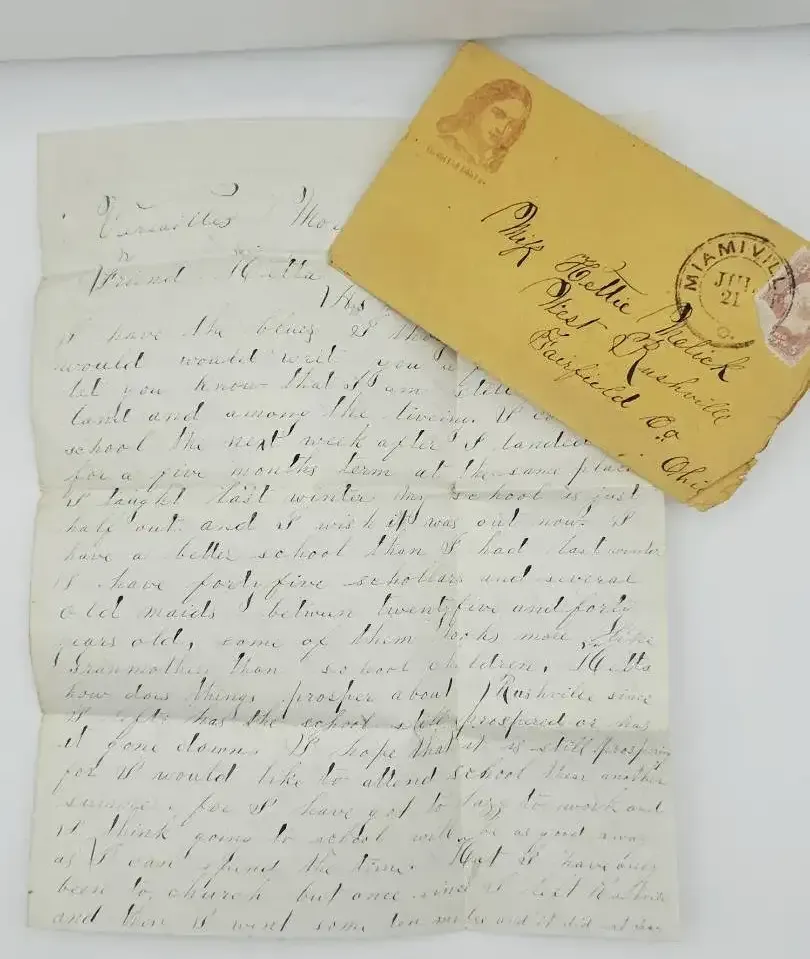 Versailles Mo
Friend Hetta
As
I have the blues I tho
would would writ you a
let you know that I am still
land and among the liveing. I co
school the next week after I landed
for a five months term at the same place
I taught last winter my school is just
half out. and I wish it was out now. I
have a better school than I had last winter
I have forty five schollars and several
old maids betwen twenty five and forty
years old, some of them looks more like
Granmothers than school children, Hetta
how does things prosper about Rushville since
I left has the school still prospered or has
it gone down. I hope that it is still prospering
for I would like to attend school there another
summer. for I have got to lazy to work and
I think going to school will be as good a way
as I can spend the time. I have only
been to church but once since I left Rushville
and then I went some ten miles and it did not
Miſs Hettie Melick
West Rushville
Fairfield Co.
Ohio
MIAMIVILLE
JUL
21
O.